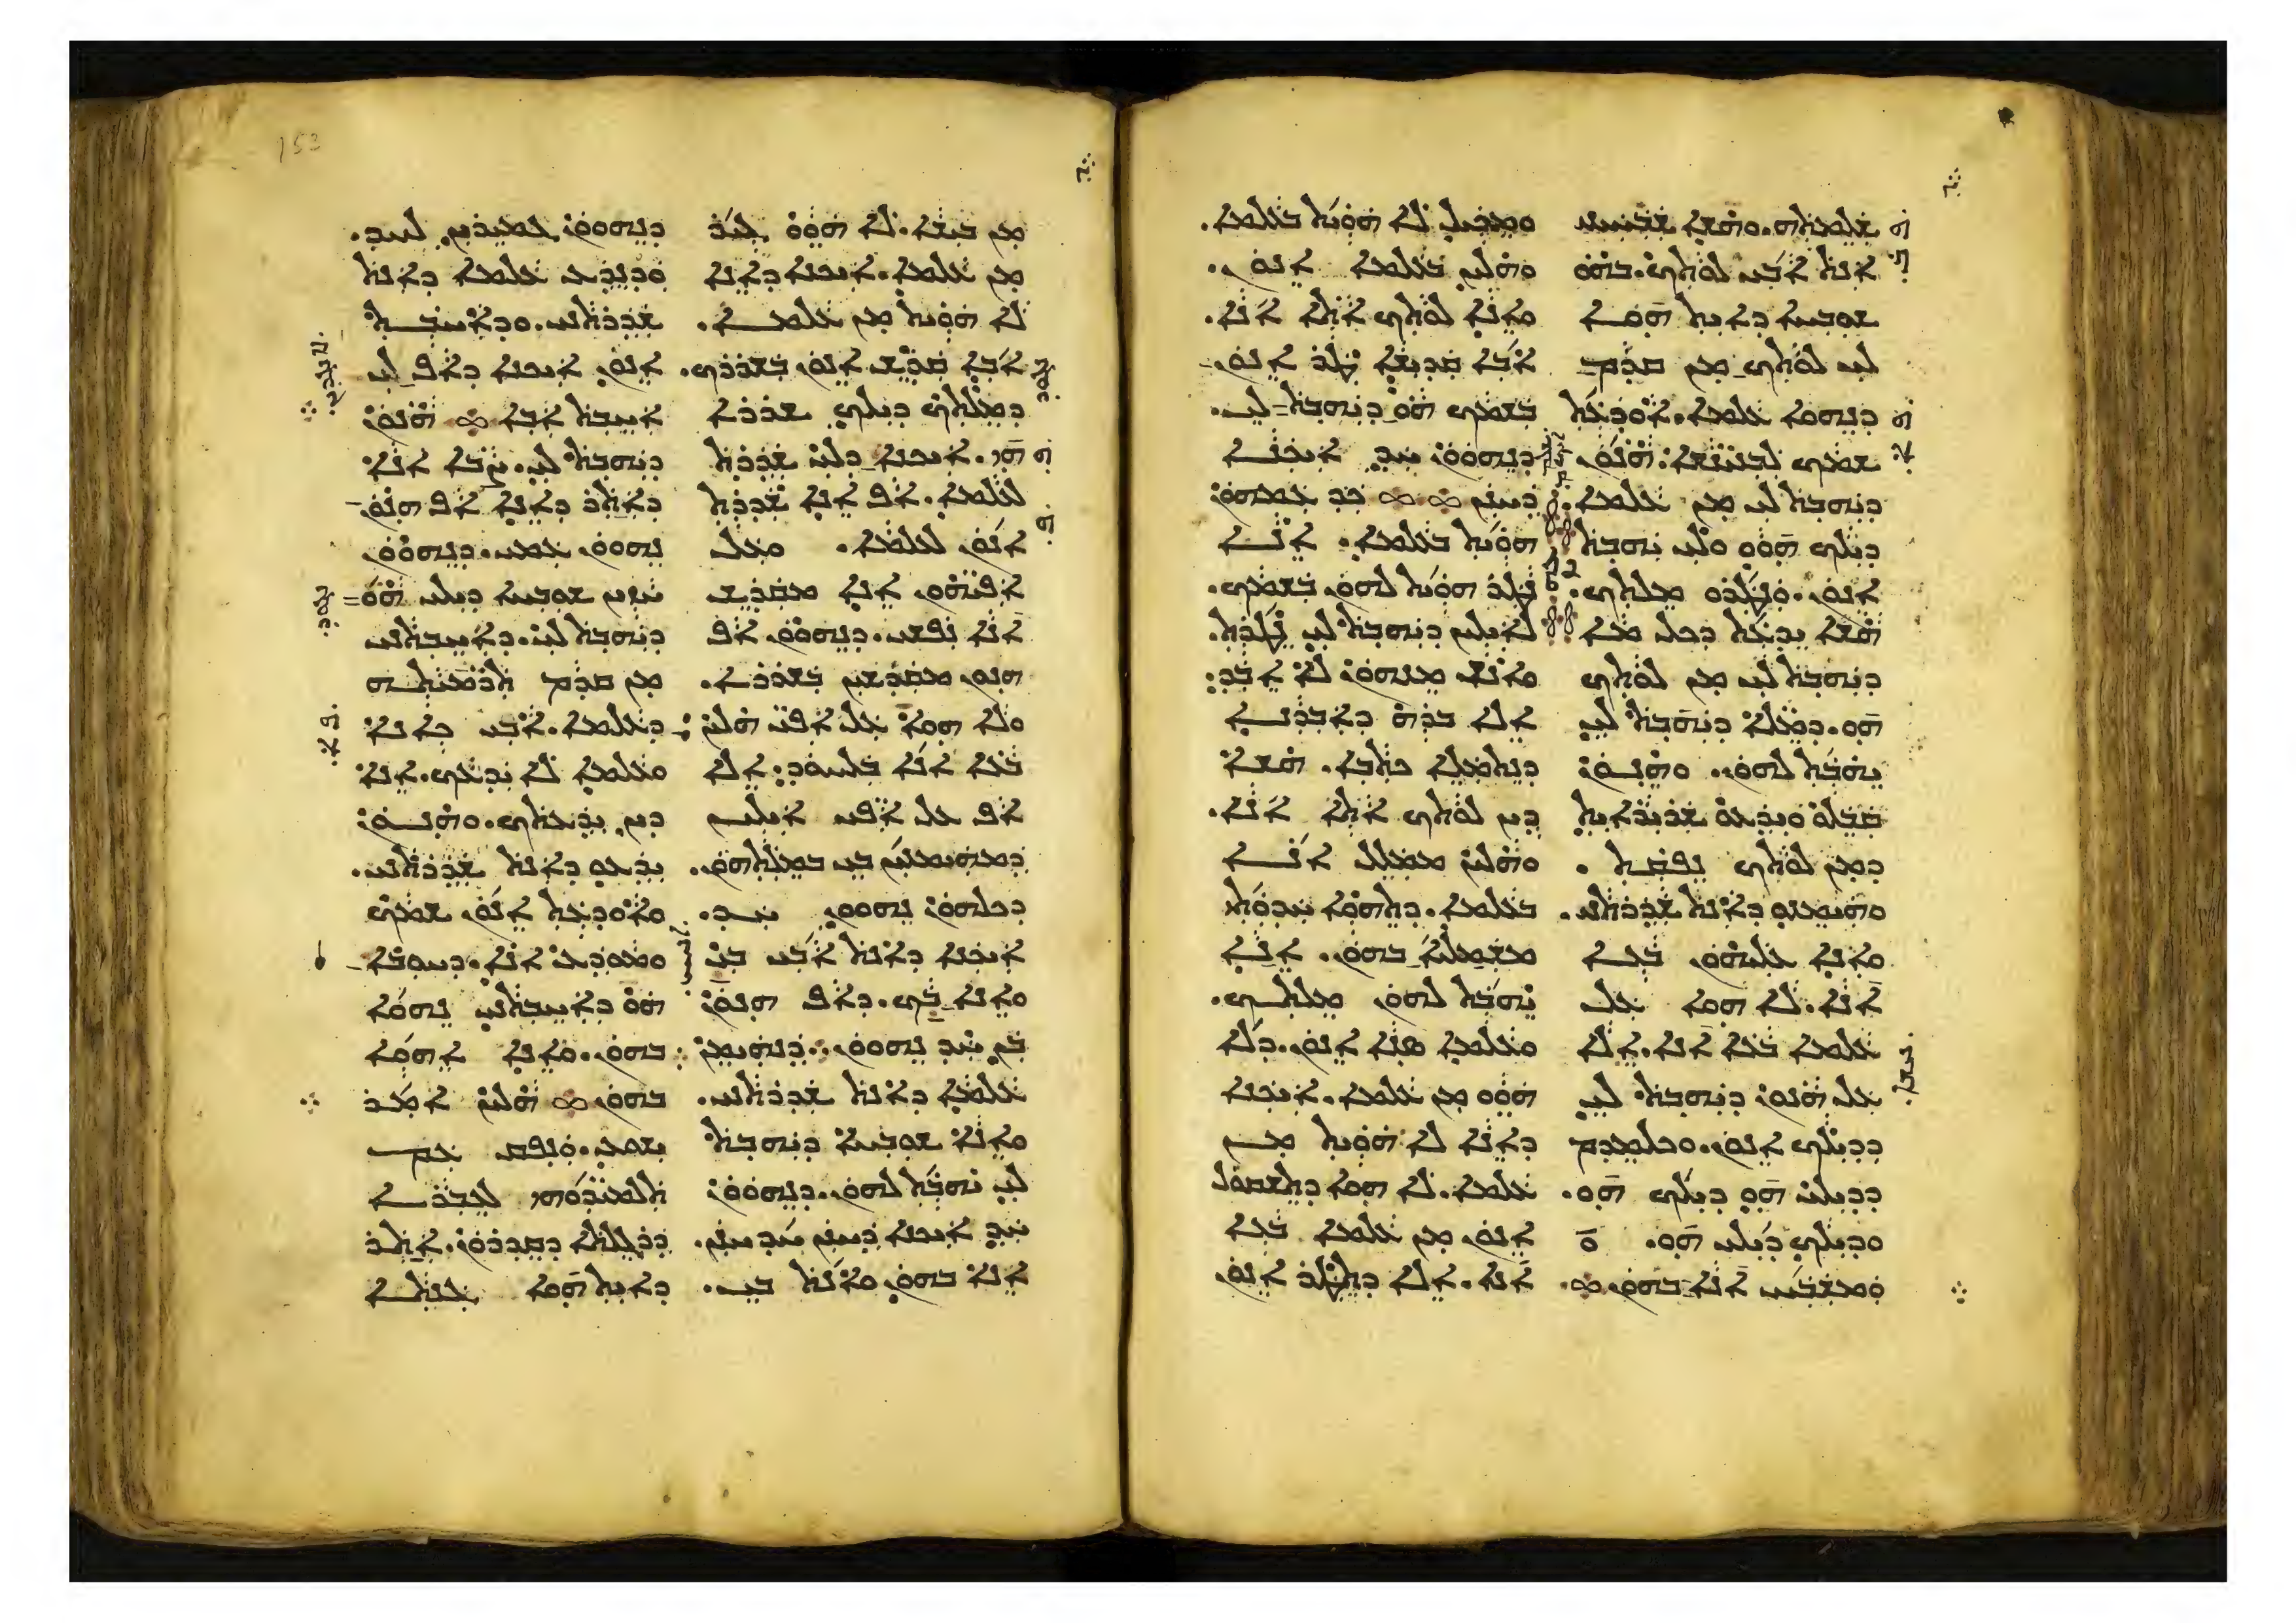 ܫܠܡܬܗ. ܘܗܫܐ ܫܒܚܝܢܝ
ܐܢܬ ܐܒܝ ܠܘܬܟ. ܒܗܘ
ܫܘܒܚܐ ܕܐܝܬ ܗܘܐ
ܠܝ ܠܘܬܟ ܡܢ ܩܕܡ
ܕܢܗܘܐ ܥܠܡܐ. ܐܘܕܥܬ
ܫܡܟ ܠܒܢܝܢܫܐ. ܗܢܘܢ
ܕܝܗܒܬ ܠܝ ܡܢ ܥܠܡܐ.
ܕܝܠܟ ܗܘܘ ܘܠܝ ܝܗܒܬ
ܐܢܘܢ. ܘܢܛܪܘ ܡܠܬܟ.
ܗܫܐ ܝܕܥܬ ܕܟܠ ܡܐ
ܕܝܗܒܬ ܠܝ ܡܢ ܠܘܬܟ
ܗܘ. ܕܡܠܐ ܕܝܗܒܬ ܠܝ
ܝܗܒܬ ܠܗܘܢ. ܘܗܢܘܢ
ܩܒܠܘ ܘܝܕܥܘ ܫܪܝܪܐܝܬ
ܕܡܢ ܠܘܬܟ ܢܦܩܬ.
ܘܗܝܡܢܘ ܕܐܢܬ ܫܕܪܬܢܝ.
ܘܐܢܐ ܥܠܝܗܘܢ ܒܥܐ
ܐܢܐ. ܠܐ ܗܘܐ ܥܠ
ܥܠܡܐ ܒܥܐ ܐܢܐ. ܐܠܐ
ܥܠ ܗܢܘܢ ܕܝܗܒܬ ܠܝ
ܕܕܝܠܟ ܐܢܘܢ. ܘܟܠܡܕܡ
ܕܕܝܠܝ ܗܘ ܕܝܠܟ ܗܘ.
ܘܕܝܠܟ ܕܝܠܝ ܗܘ.
ܘܡܫܒܚ ܐܢܐ ܒܗܘܢ.
ܘܡܟܝܠ ܠܐ ܗܘܝܬ ܒܥܠܡܐ.
ܘܗܠܝܢ ܒܥܠܡܐ ܐܢܘܢ.
ܘܐܢܐ ܠܘܬܟ ܐܬܐ ܐܢܐ.
ܐܒܐ ܩܕܝܫܐ ܛܪ ܐܢܘܢ
ܒܫܡܟ ܗܘ ܕܝܗܒܬ ܠܝ.
ܕܢܗܘܘܢ ܚܕ ܐܝܟܢܐ
ܕܚܢܢ ܟܕ ܥܡܗܘܢ
ܗܘܝܬ ܒܥܠܡܐ. ܐܢܐ
ܢܛܪ ܗܘܝܬ ܠܗܘܢ ܒܫܡܟ.
ܠܐܝܠܝܢ ܕܝܗܒܬ ܠܝ ܢܛܪܬ.
ܘܐܢܫ ܡܢܗܘܢ ܠܐ ܐܒܕ.
ܐܠܐ ܒܪܗ ܕܐܒܕܢܐ
ܕܢܬܡܠܐ ܟܬܒܐ. ܗܫܐ
ܕܝܢ ܠܘܬܟ ܐܬܐ ܐܢܐ.
ܘܗܠܝܢ ܡܡܠܠ ܐܢܐ
ܒܥܠܡܐ. ܕܬܗܘܐ ܚܕܘܬܝ
ܡܫܡܠܝܐ ܒܗܘܢ. ܐܢܐ
ܝܗܒܬ ܠܗܘܢ ܡܠܬܟ.
ܘܥܠܡܐ ܣܢܐ ܐܢܘܢ. ܕܠܐ
ܗܘܘ ܡܢ ܥܠܡܐ. ܐܝܟܢܐ
ܕܐܢܐ ܠܐ ܗܘܝܬ ܡܢ
ܥܠܡܐ. ܠܐ ܗܘܐ ܕܬܫܩܘܠ
ܐܢܘܢ ܡܢ ܥܠܡܐ ܒܥܐ
ܐܢܐ. ܐܠܐ ܕܬܛܪ ܐܢܘܢ
153
ܡܢ ܒܝܫܐ. ܠܐ ܗܘܘ ܓܝܪ
ܡܢ ܥܠܡܐ. ܐܝܟܢܐ ܕܐܢܐ
ܠܐ ܗܘܝܬ ܡܢ ܥܠܡܐ.
ܐܒܐ ܩܕܫ ܐܢܘܢ ܒܫܪܪܟ.
ܕܡܠܬܟ ܕܝܠܟ ܫܪܪܐ
ܗܝ. ܐܝܟܢܐ ܕܠܝ ܫܕܪܬ
ܠܥܠܡܐ. ܐܦ ܐܢܐ ܫܕܪܬ
ܐܢܘܢ ܠܥܠܡܐ. ܘܥܠ
ܐܦܝܗܘܢ ܐܢܐ ܡܩܕܫ
ܐܢܐ ܢܦܫܝ. ܕܢܗܘܘܢ ܐܦ
ܗܢܘܢ ܡܩܕܫܝܢ ܒܫܪܪܐ.
ܘܠܐ ܗܘܐ ܥܠ ܐܦܝ ܗܠܝܢ
ܒܥܐ ܐܢܐ ܒܠܚܘܕ. ܐܠܐ
ܐܦ ܥܠ ܐܦܝ ܐܝܠܝܢ
ܕܡܗܝܡܢܝܢ ܒܝ ܒܡܠܬܗܘܢ.
ܕܟܠܗܘܢ ܢܗܘܘܢ ܚܕ.
ܐܝܟܢܐ ܕܐܢܬ ܐܒܝ ܒܝ
ܘܐܢܐ ܒܟ. ܕܐܦ ܗܢܘܢ
ܒܢ ܚܕ ܢܗܘܘܢ. ܕܢܗܝܡܢ
ܥܠܡܐ ܕܐܢܬ ܫܕܪܬܢܝ.
ܘܐܢܐ ܫܘܒܚܐ ܕܝܗܒܬ
ܠܝ ܝܗܒܬ ܠܗܘܢ. ܕܢܗܘܘܢ
ܚܕ ܐܝܟܢܐ ܕܚܢܢ ܚܕ ܚܢܢ.
ܐܢܐ ܒܗܘܢ ܘܐܢܬ ܒܝ.
ܕܢܗܘܘܢ ܓܡܝܪܝܢ ܠܚܕ.
ܘܕܢܕܥ ܥܠܡܐ ܕܐܢܬ
ܫܕܪܬܢܝ. ܘܕܐܚܒܬ
ܐܢܘܢ ܐܝܟܢܐ ܕܐܦ ܠܝ
ܐܚܒܬ ܐܒܐ ܗܢܘܢ
ܕܝܗܒܬ ܠܝ. ܨܒܐ ܐܢܐ
ܕܐܝܟܪ ܕܐܢܐ ܐܦ ܗܢܘܢ
ܢܗܘܘܢ ܥܡܝ. ܕܢܗܘܘܢ
ܚܙܝܢ ܫܘܒܚܐ ܕܝܠܝ ܗܘ
ܕܝܗܒܬ ܠܝ. ܕܐܚܒܬܢܝ
ܡܢ ܩܕܡ ܬܪܡܝܬܗ
ܕܥܠܡܐ. ܐܒܝ ܟܐܢܐ
ܘܥܠܡܐ ܠܐ ܝܕܥܟ. ܐܢܐ
ܕܝܢ ܝܕܥܬܟ. ܘܗܢܘܢ
ܝܕܥܘ ܕܐܢܬ ܫܕܪܬܢܝ.
ܘܐܘܕܥܬ ܐܢܘܢ ܫܡܟ
ܘܡܘܕܥ ܐܢܐ. ܕܚܘܒܐ
ܗܘ ܕܐܚܒܬܢܝ ܢܗܘܐ
ܒܗܘܢ. ܘܐܢܐ ܐܗܘܐ
ܒܗܘܢ ܗܠܝܢ ܐܡܪ
ܝܫܘܥ. ܘܢܦܩ ܥܡ
ܬܠܡܝܕܘܗܝ ܠܥܒܪܐ
ܕܪܓܠܬܐ ܕܩܕܪܘܢ. ܐܬܪ
ܕܐܝܬ ܗܘܐ ܓܢܬܐ